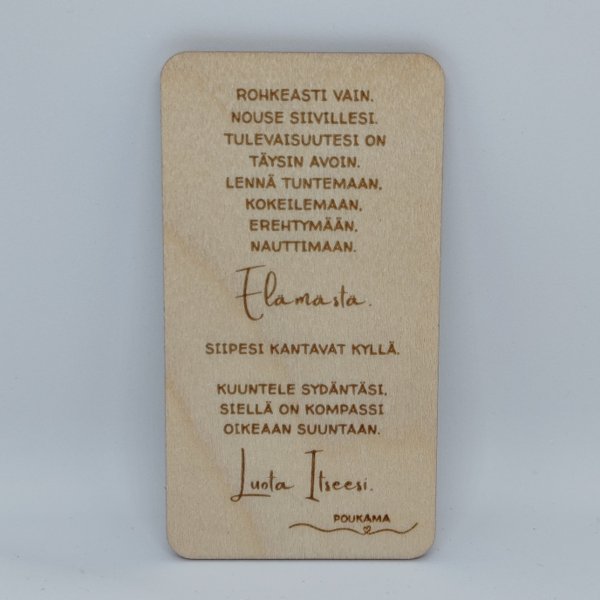 ROHKEASTI VAIN.
NOUSE SIIVILLESI.
TULEVAISUUTESI ON
TÄYSIN AVOIN.
LENNÄ TUNTEMAAN,
KOKEILEMAAN,
EREHTYMÄÄN,
NAUTTIMAAN.
Elämästä.
SIIPESI KANTAVAT KYLLÄ.
KUUNTELE SYDÄNTÄSI,
SIELLÄ ON KOMPASSI
OIKEAAN SUUNTAAN.
Luota Itseesi.
POUKAMA